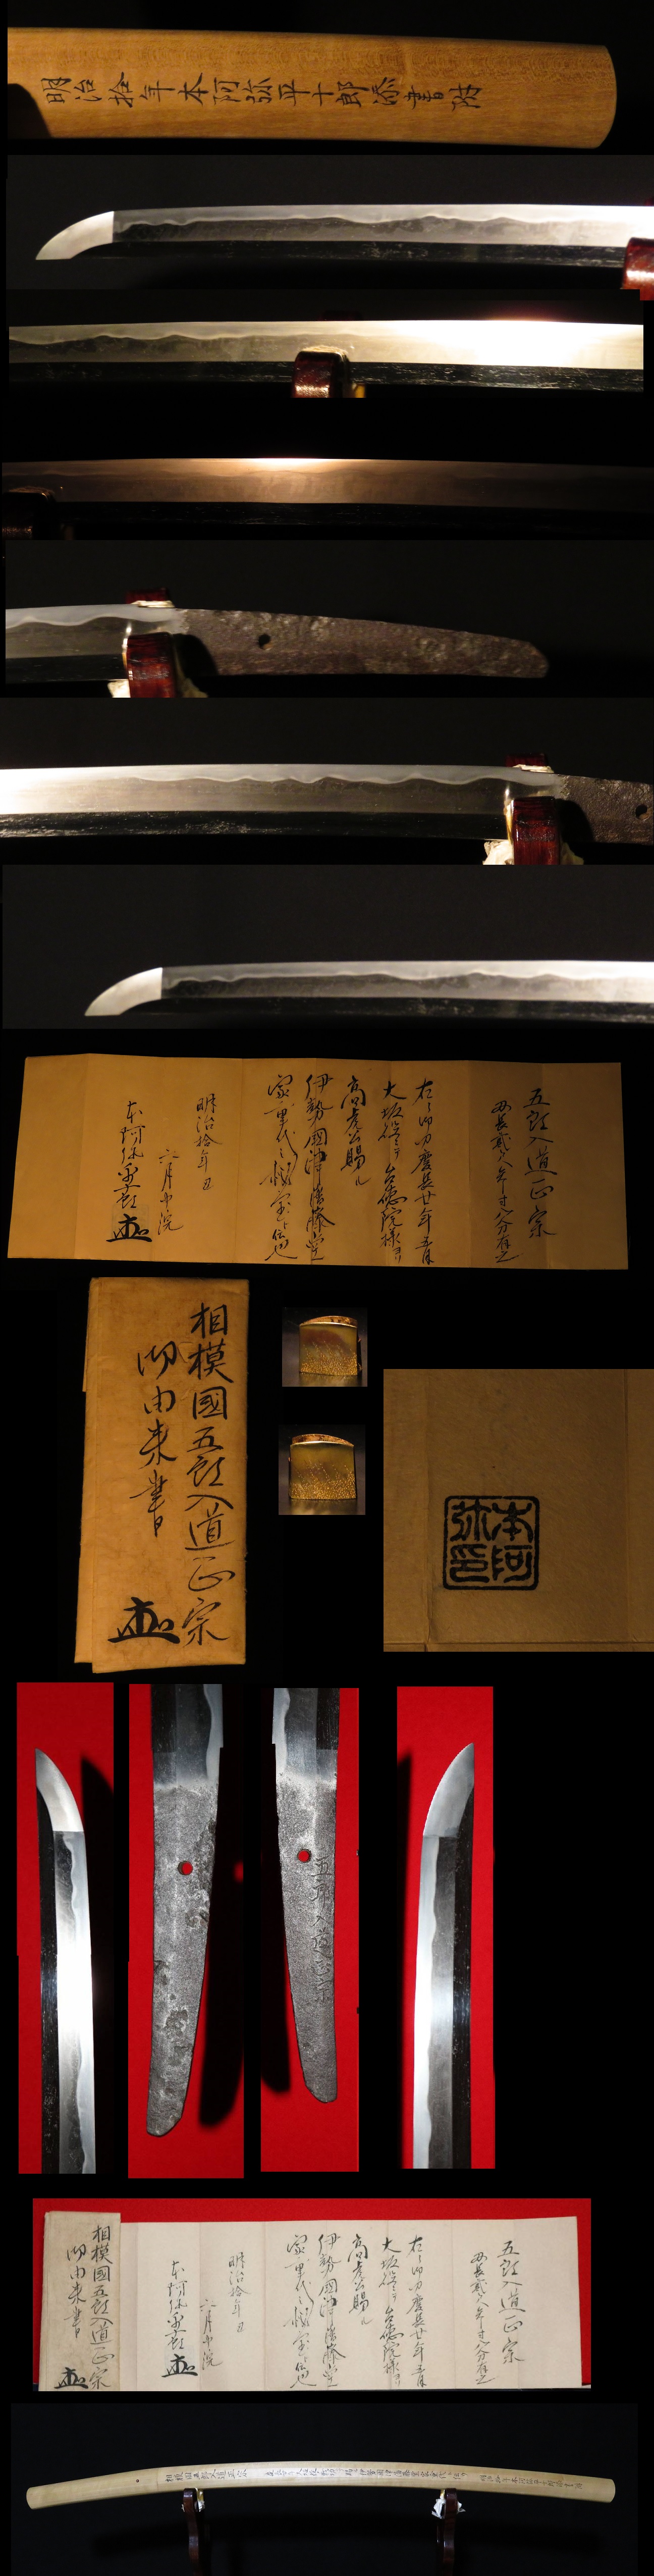 明治拾年本阿弥平十郎添書附
五郎入道正宗
刃長貳尺年寸八分有之
右之御刀慶長廿年五月
大坂役ニテ台徳院様ヨリ
高虎公賜ル
伊勢國津藩藤堂
家重代之秘宝ト伝也
明治拾年丑
六月中浣
本阿弥平十郎
相模國五郎入道正宗
御由来書
本阿弥印
五郎入道正宗
相模國五郎入道正宗
御由来書
五郎入道正宗
刃長貳尺年寸八分有之
右之御刀慶長廿年五月
大坂役ニテ台徳院様ヨリ
高虎公賜ル
伊勢國津藩藤堂
家重代之秘宝ト伝也
明治拾年丑
六月中浣
本阿弥平十郎
相模國五郎入道正宗